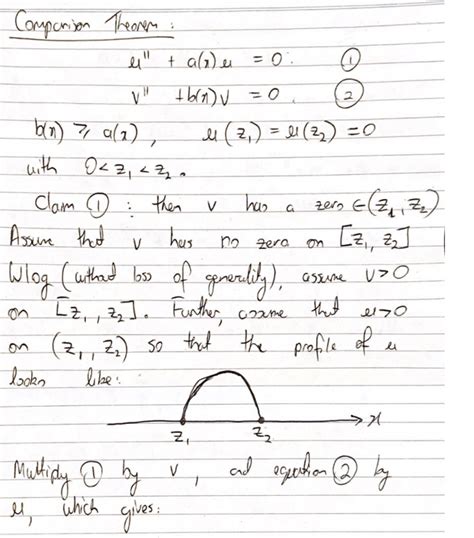 Comparison Theorem :
u'' + a(x)u = 0. ①
v'' + b(x)v = 0. ②
b(x) ⩾ a(x), u(z₁) = u(z₂) = 0
with 0 < z₁ < z₂.
Claim ① : then v has a zero ∈ (z₁, z₂)
Assume that v has no zero on [z₁, z₂]
Wlog (without loss of generality), assume v > 0
on [z₁, z₂]. Further, assume that u > 0
on (z₁, z₂) so that the profile of u
looks like:
x
z₁ z₂
Multiply ① by v, and equation ② by
u, which gives: